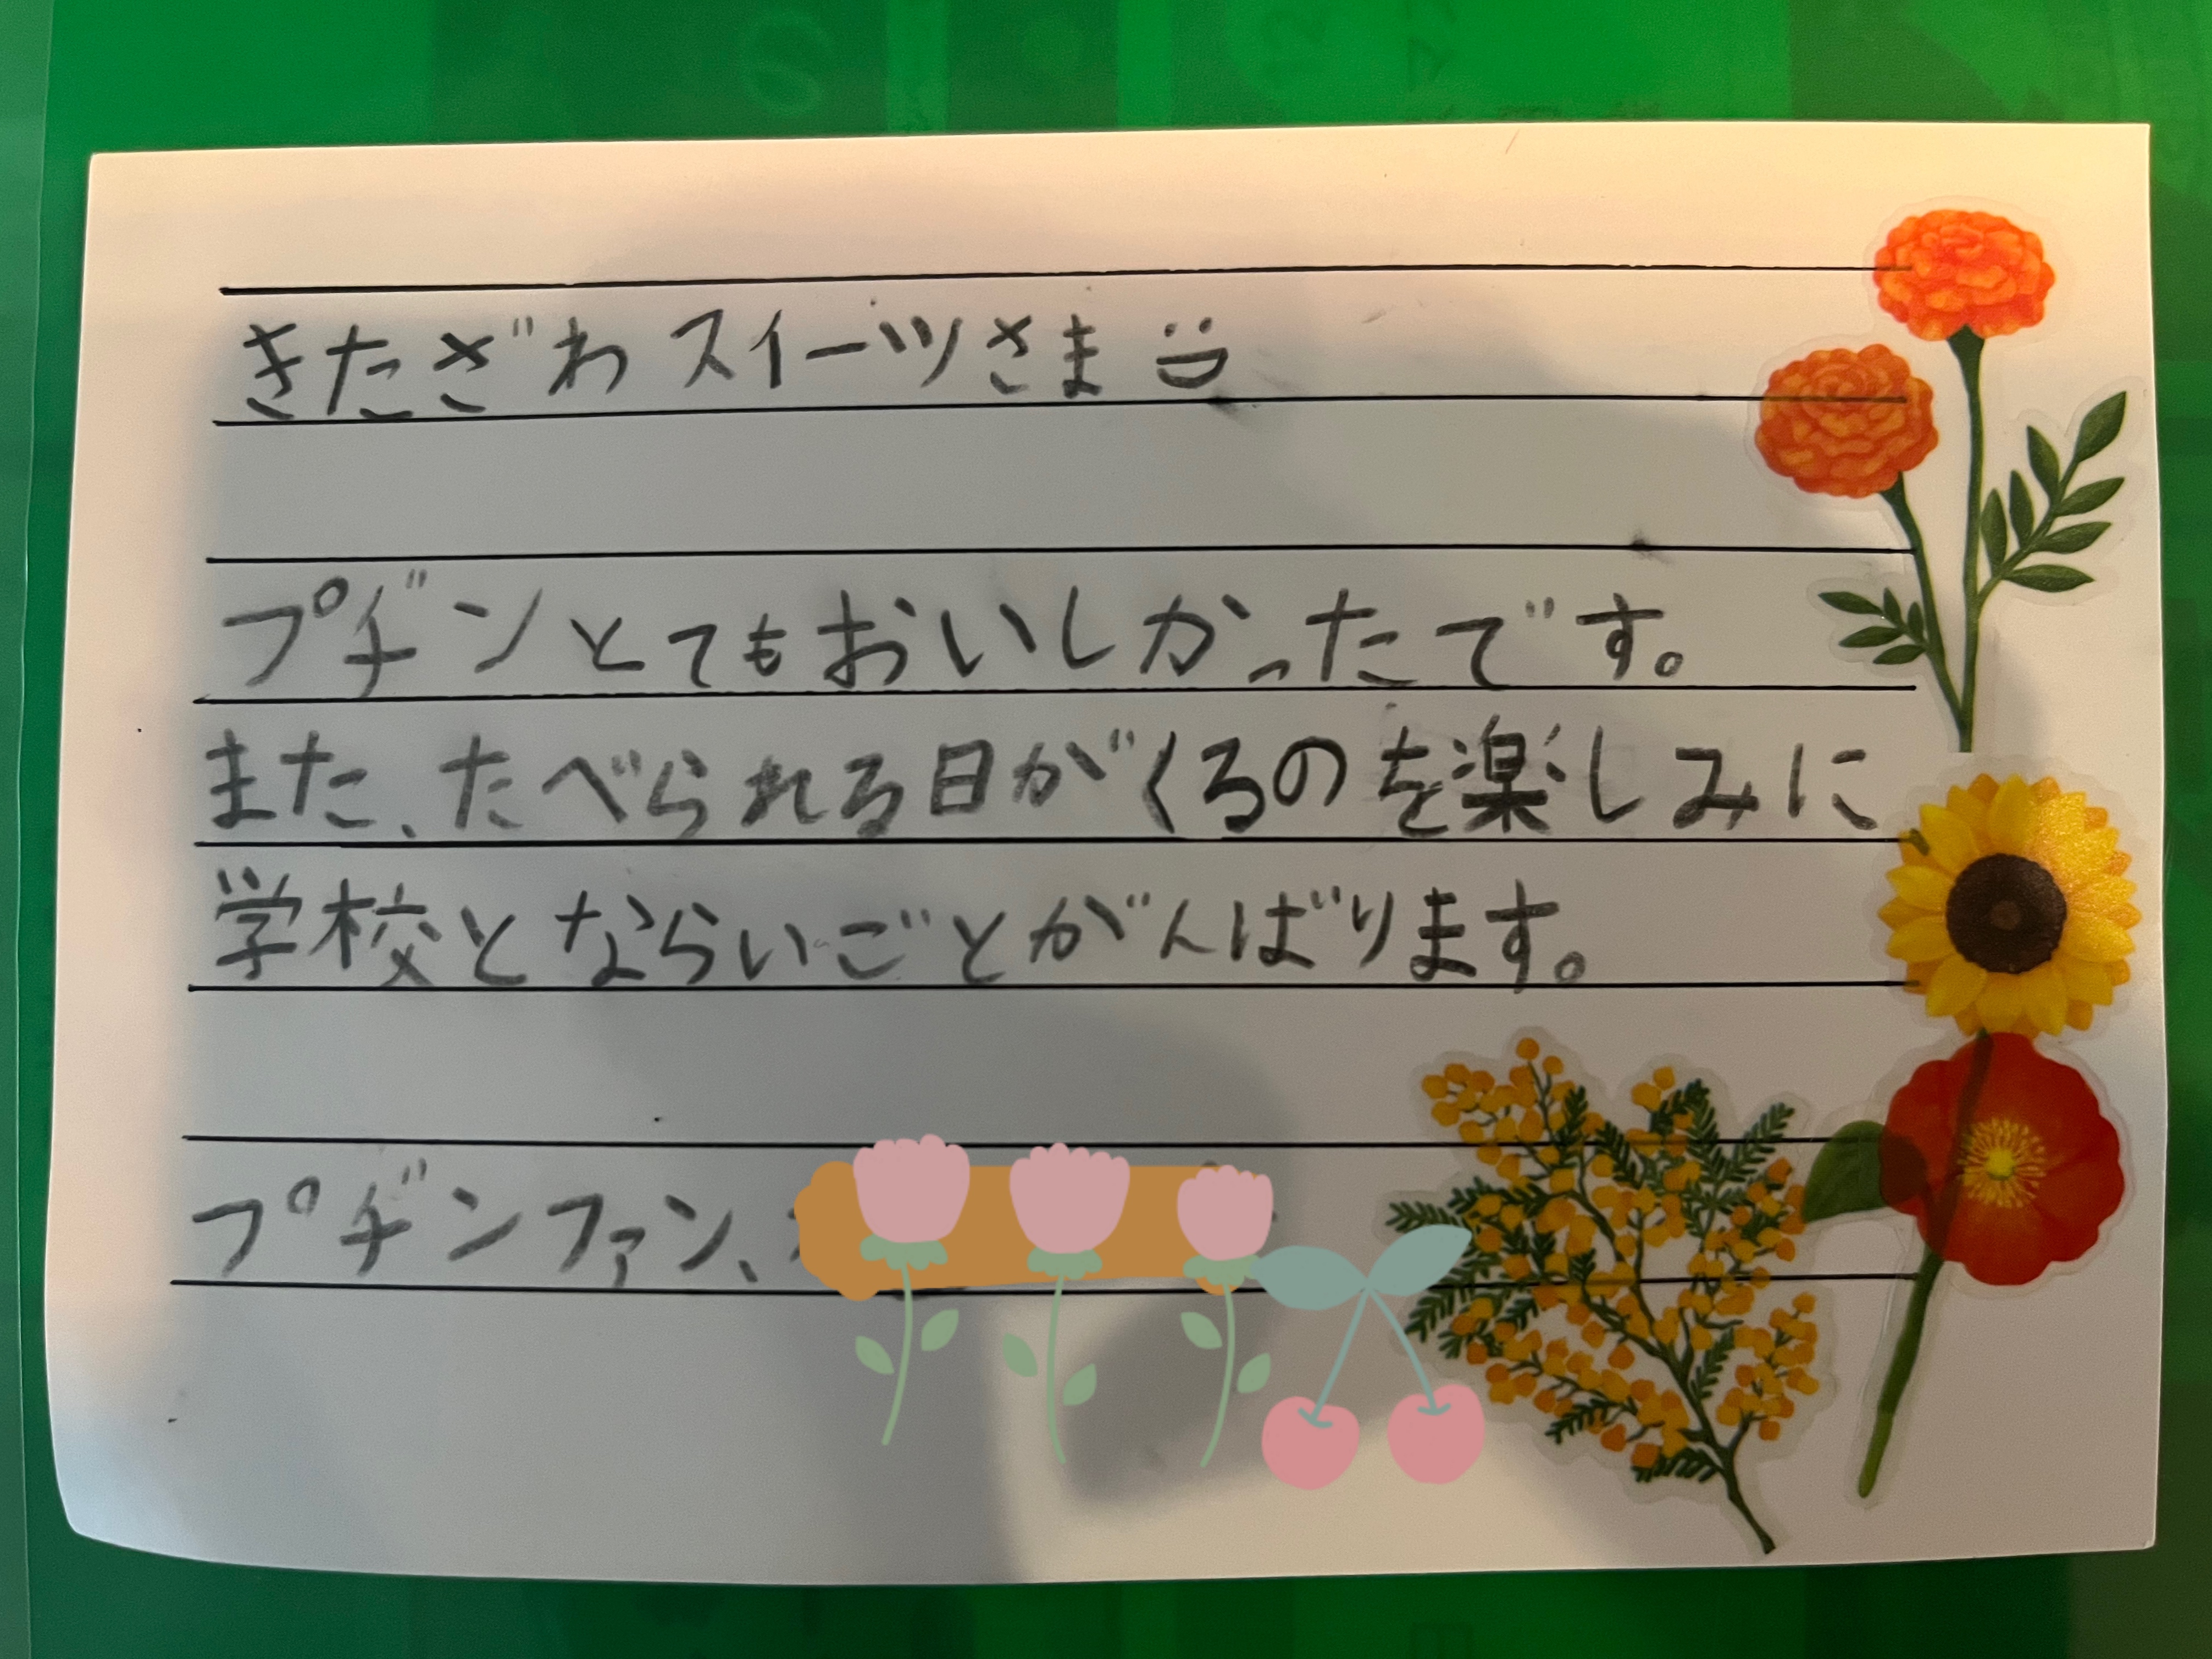 きたざわスイーツさま
プヂンとてもおいしかったです。
また、たべられる日がくるのを楽しみに
学校とならいごとがんばります。
プヂンファン、